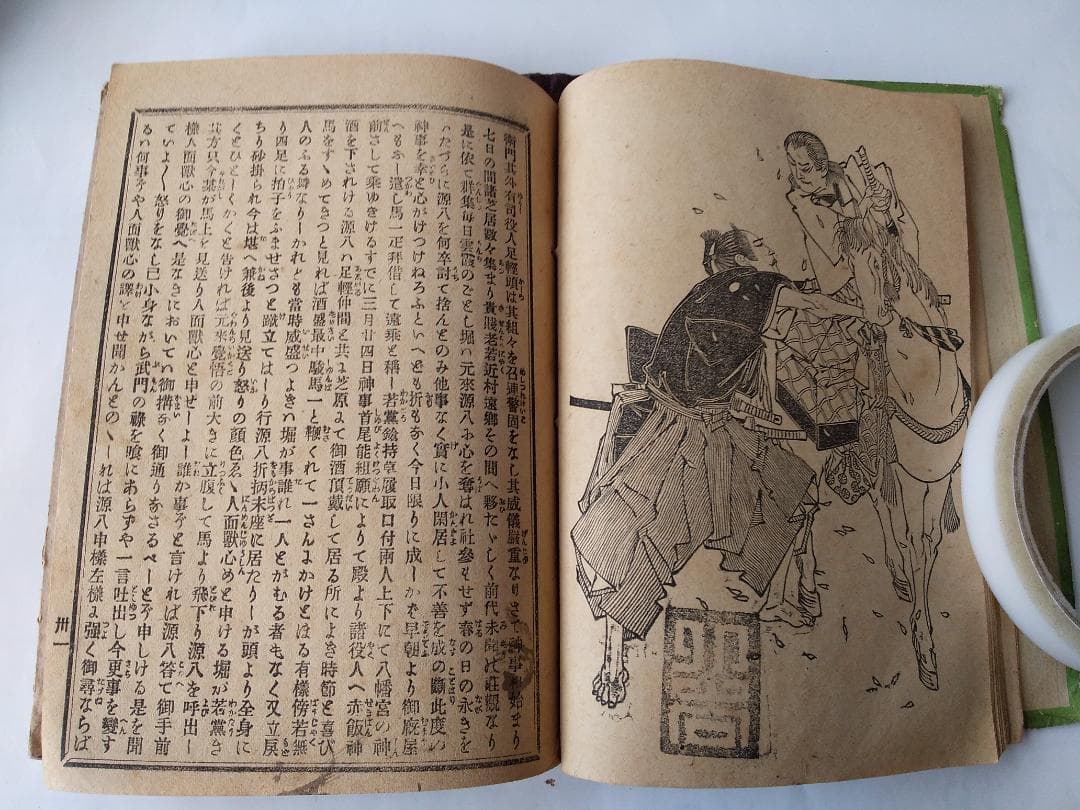 衛門其外有司役人足輕頭は其組々を召連警固をなし其威儀嚴重なりさて神事も始まり
七日の間諸芝居數々集まり貴賤老若近村遠鄕その間へ夥たゝしく前代未聞の莊觀なり
是に依て群集毎日雲霞のごとし堀ハ元來源八に心を奪はれ社參もせず春の日の永きを
いたづらに源八を何卒討て捨んとのみ他事なく實に小人閑居して不善を成の斷此度の
神事を幸と心がけつけねろふといへども折もなく今日限りに成しかバ早朝より御廐屋
へもかし遣し馬一疋拜借して遠乘と稱し若黨鎗持草履取口付兩人上下にて八幡宮の神
前さして乘ゆきけるすでに三月廿四日神事首尾能組願によりて殿より諸役人へ赤飯神
酒を下されける源八ハ足輕仲間と共に芝原にて御酒頂戴して居る所によき時節と喜び
馬をすゝめてきつと見れば酒盛最中駿馬に一と鞭くれて一さんよかけとほる有樣傍若無
人のふる舞なりしかれども當時威盛つよき堀が事誰れ一人とがむる者もなく又立戾
り四足に拍子をふませさつと蹴立てはしり行源八折柄末座に居たりしが頭より全身に
ちり砂掛られ今は堪へ兼後より見送り怒りの顏色ゑゝ人面獸心めと申ける堀が若黨き
くとひとしくかくと告ければ元來覺悟の前大きに立腹して馬より飛下り源八を呼出し
其方只今某が馬上を見送り人面獸心と申せしよし誰が事ぞと言ければ源八答て御手前
樣人面獸心の御覺へ是なきにおいてハ御構なく御通りなさるべしとぞ申しける是を聞
ていよ〱怒りをなし己小身ながら武門の祿を喰にあらずや一言吐出し今更事を變す
るハ何事ぞや人面獸心の譯を申せ聞かんとのゝしれば源八申樣左樣に强く御尋ならば
卅一